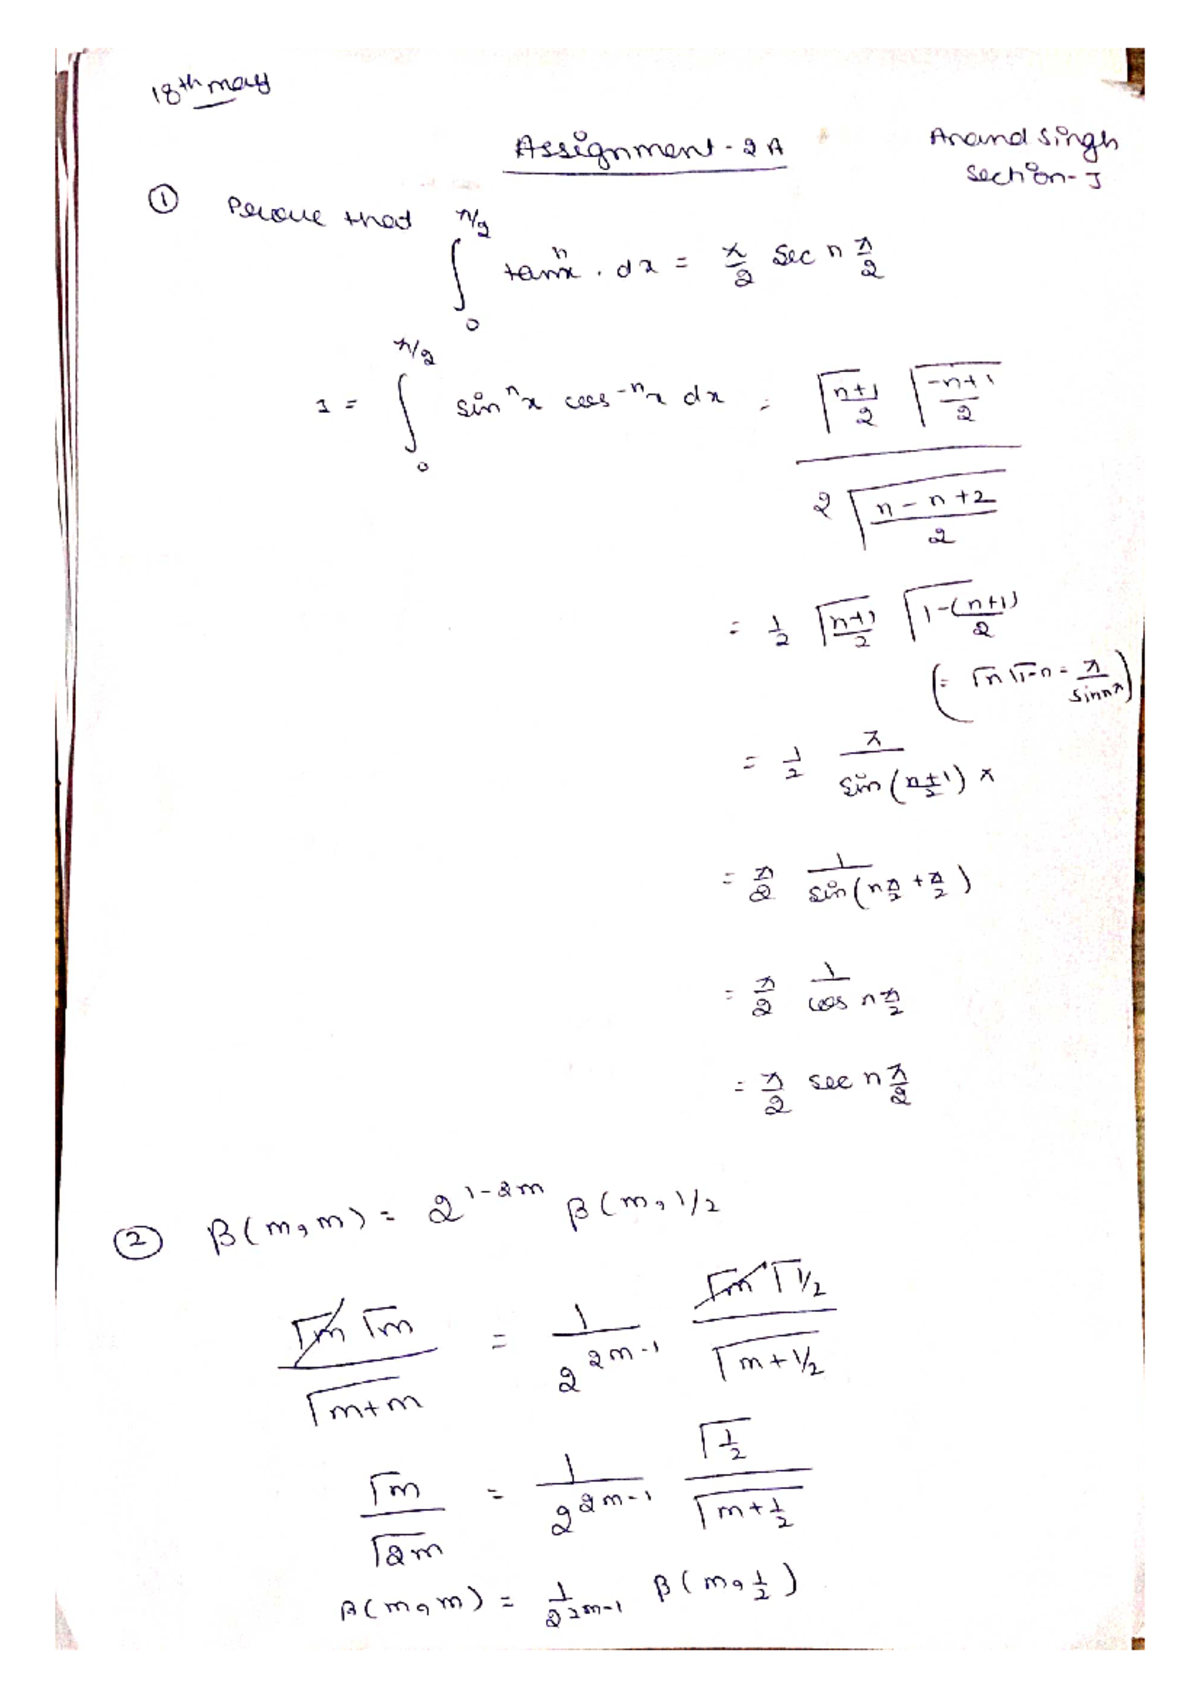 18th may
Assignment - 2A
Anand Singh
Section - J
① Prove that ∫₀^(π/2) tanⁿx . dx = π/2 sec n π/2
I = ∫₀^(π/2) sinⁿx cos⁻ⁿx dx = (Γ((n+1)/2) Γ((-n+1)/2)) / (2 Γ((n-n+2)/2))
= 1/2 Γ((n+1)/2) Γ(1-(n+1)/2)
(∵ Γn Γ1-n = π/sin nπ)
= 1/2 π/(sin((n+1)/2) π)
= π/2 1/(sin(n π/2 + π/2))
= π/2 1/(cos n π/2)
= π/2 sec n π/2
② β(m, m) = 2^(1-2m) β(m, 1/2
(Γm Γm)/(Γm+m) = 1/(2^(2m-1)) (Γm Γ1/2)/(Γm+1/2)
Γm/Γ2m = 1/(2^(2m-1)) (Γ1/2)/(Γm+1/2)
β(m, m) = 1/(2^(2m-1)) β(m, 1/2)